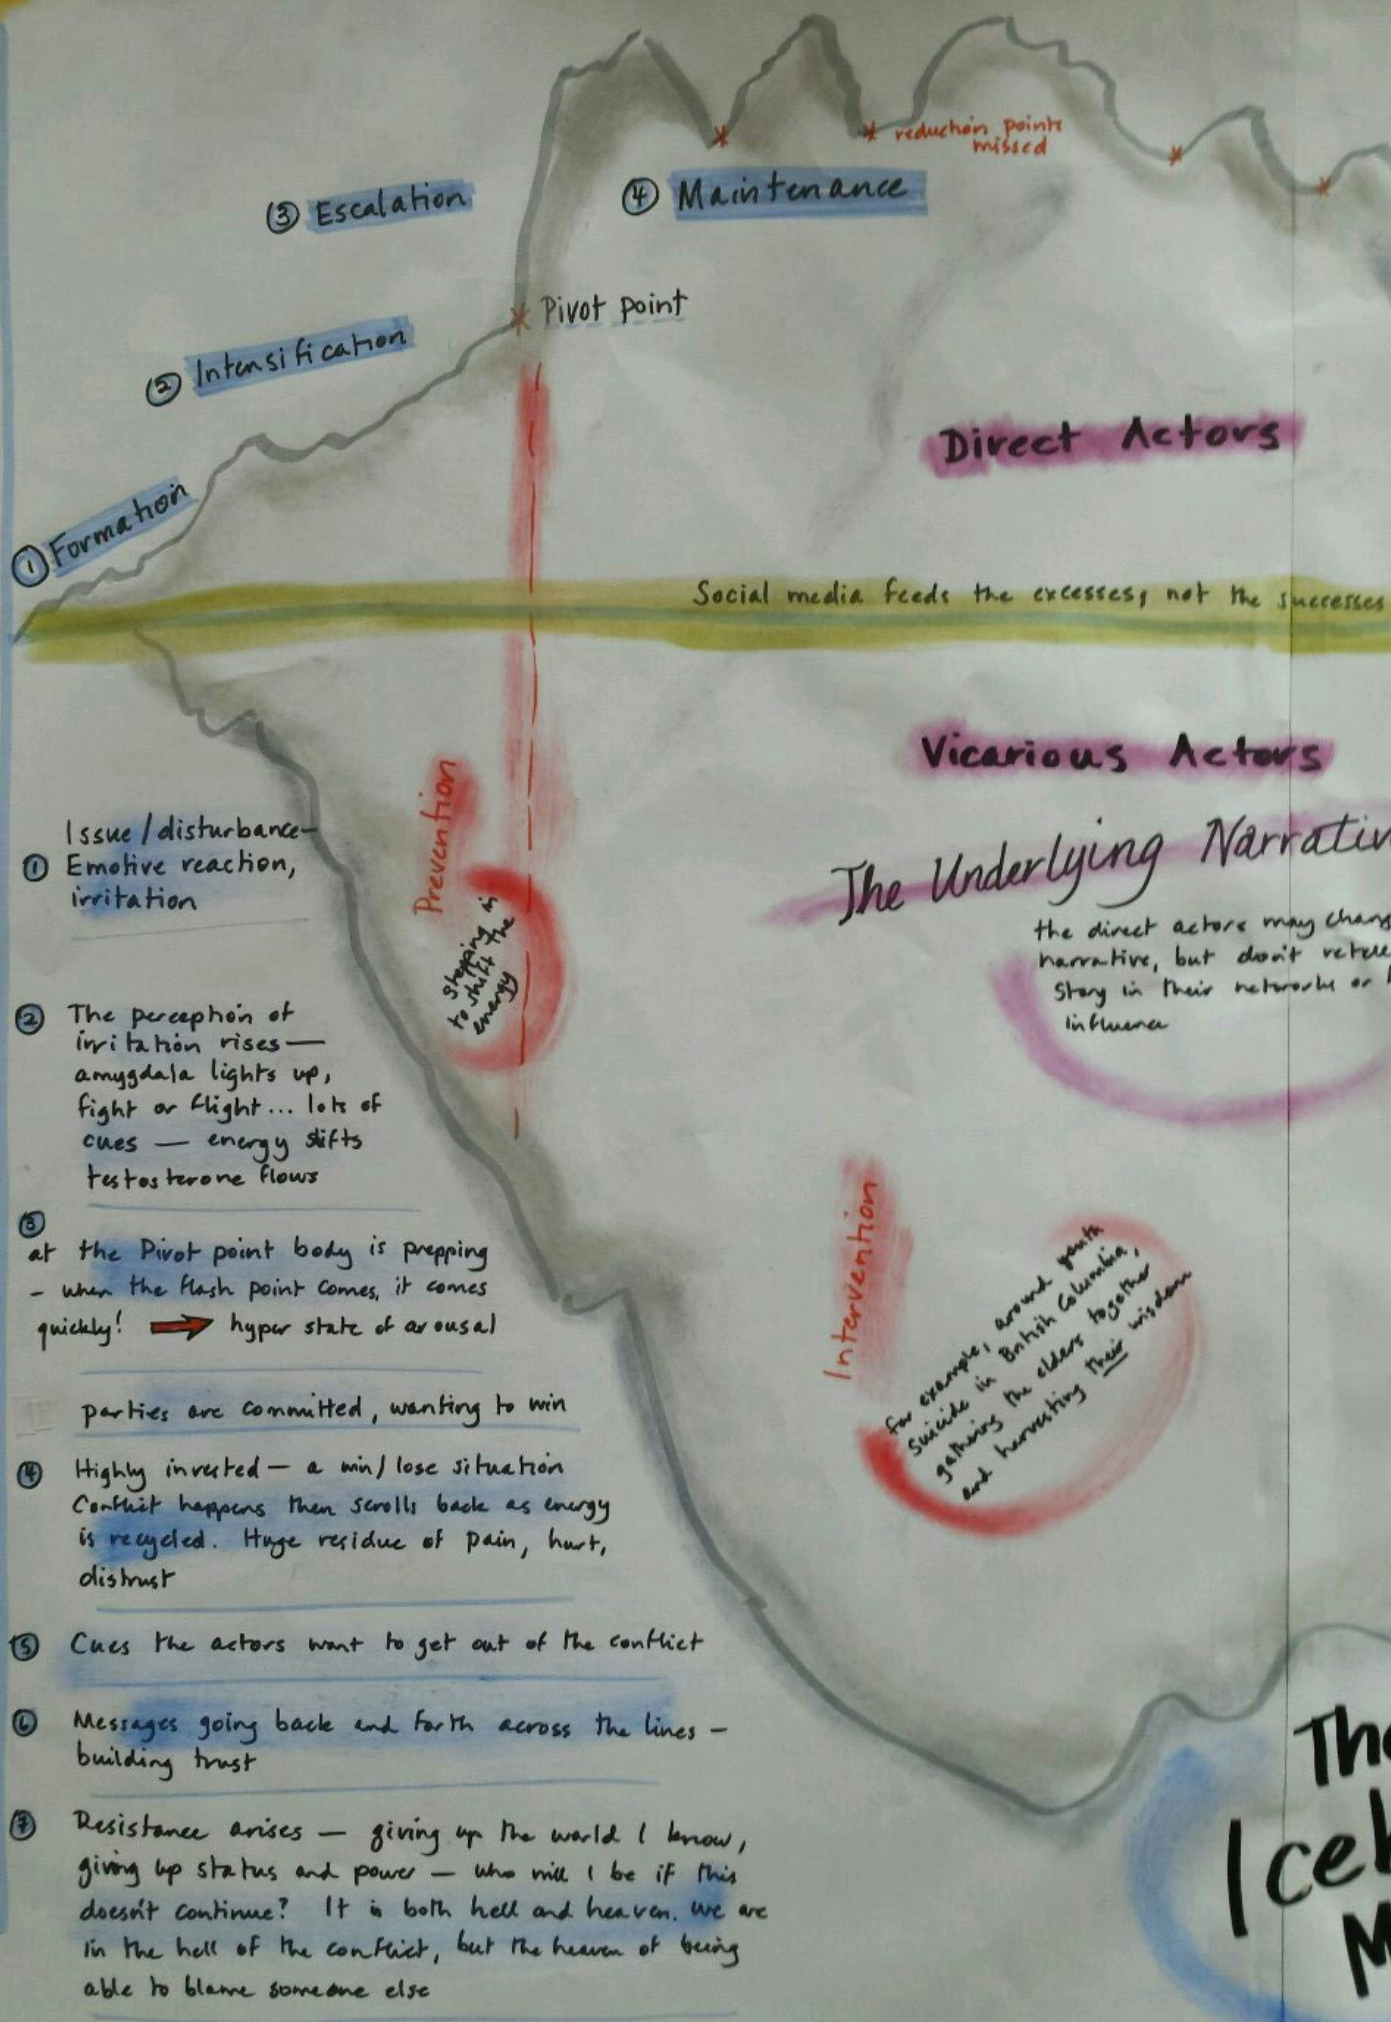 reduction points
missed
③ Escalation
④ Maintenance
Pivot point
② Intensification
Direct Actors
① Formation
Social media feeds the excesses, not the successes
Vicarious Actors
The Underlying Narrativ
the direct actors may chang
narrative, but don't
Story in their networks or
influence
Prevention
Stepping in
to shift the
energy
Intervention
for example, around youth
suicide in British Columbia,
gathering the elders together
and harvesting their wisdom
Issue/disturbance-
① Emotive reaction,
irritation
② The perception of
irritation rises —
amygdala lights up,
fight or flight... lots of
cues — energy shifts
testosterone flows
③
at the Pivot point body is prepping
- when the flash point comes, it comes
quickly! → hyper state of arousal
parties are committed, wanting to win
④ Highly invested — a win/lose situation
Conflict happens then scrolls back as energy
is recycled. Huge residue of pain, hurt,
distrust
⑤ Cues the actors want to get out of the conflict
⑥ Messages going back and forth across the lines —
building trust
⑦ Resistance arises — giving up the world I know,
giving up status and power — who will I be if this
doesn't continue? It is both hell and heaven. We are
in the hell of the conflict, but the heaven of being
able to blame someone else
The
Iceb
M